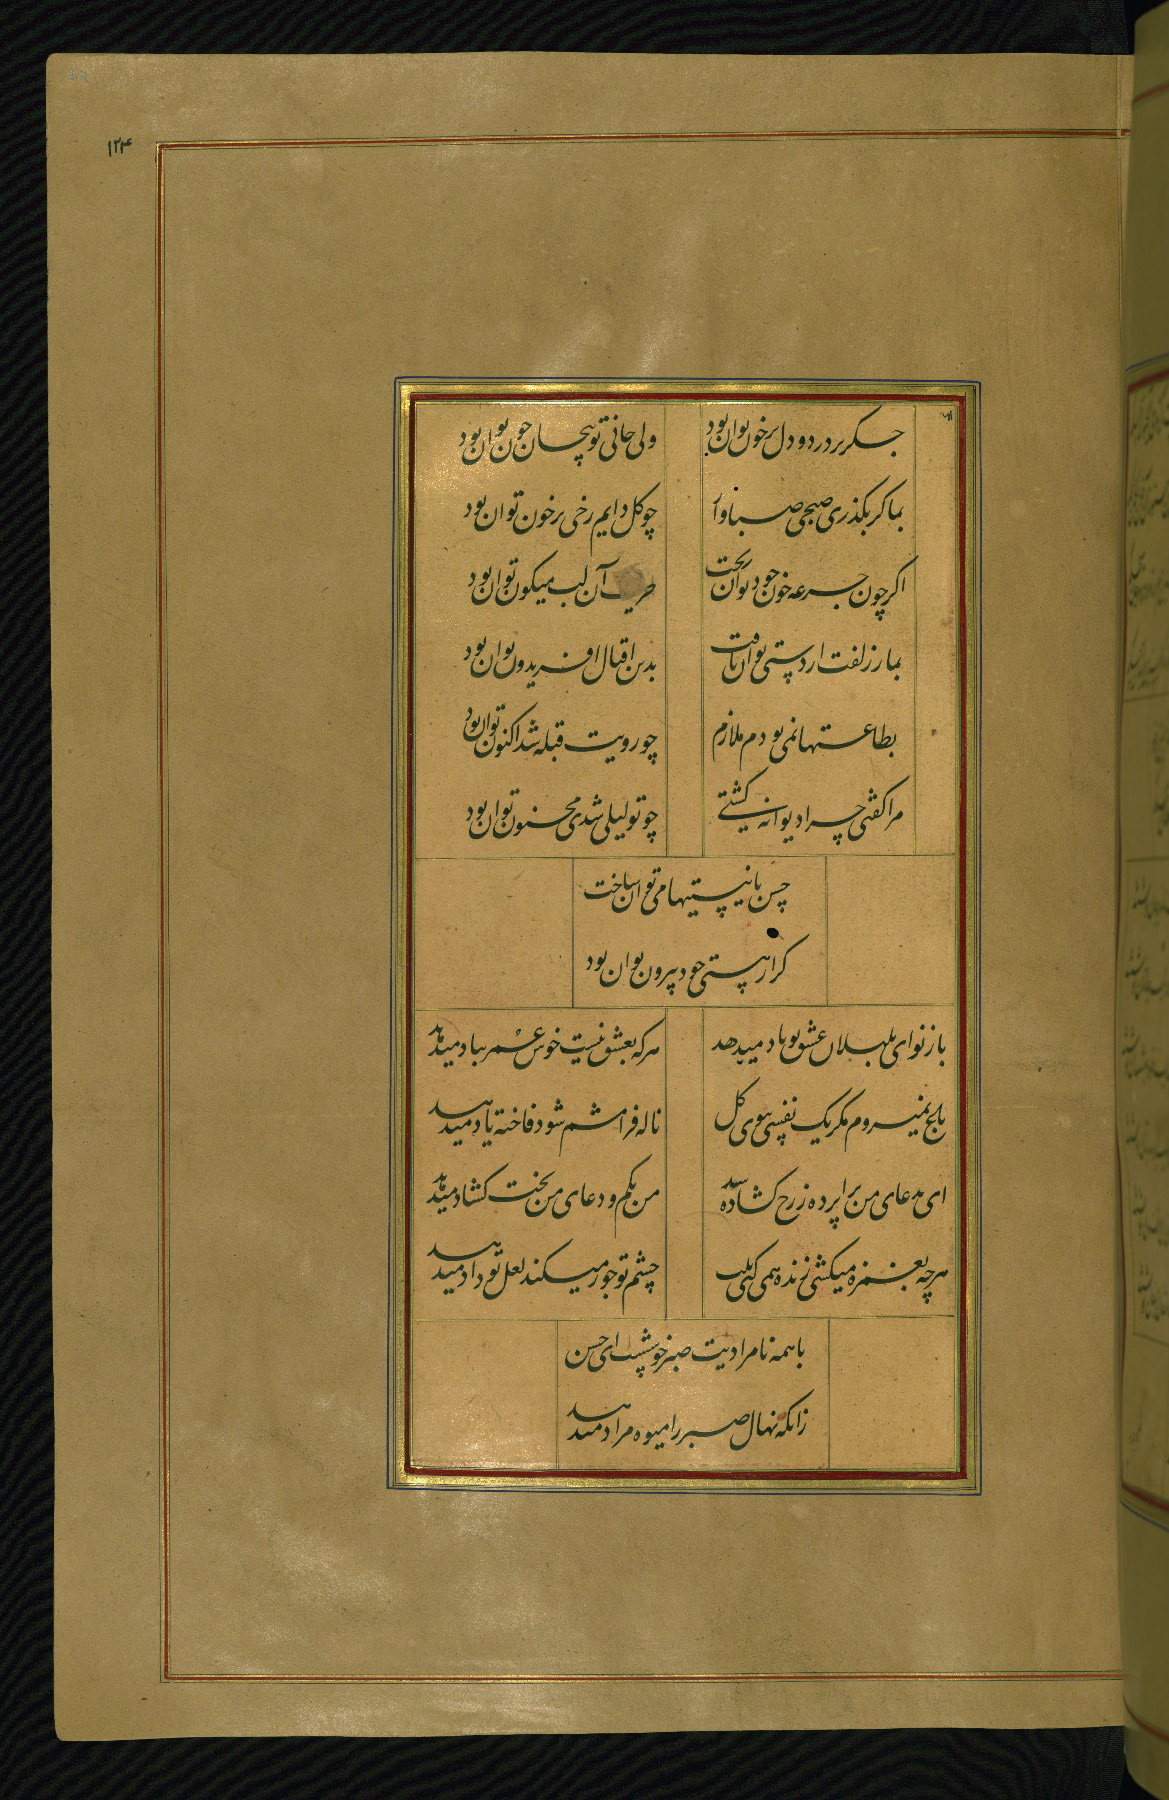 ۱۲۴
جگر بر درد و دل بر خون توان بود
ولی جانی تو بیجان چون توان بود
بما کر بکذری صبحی صبا وار
چو کل دایم رخی بر خون توان بود
اکر چون جرعه خون خود توان ریخت
حریف آن لب میکون توان بود
بمار زلفت ار دستی توان یافت
بدین اقبال افریدون توان بود
بطاعتها نمی بودم ملازم
چو رویت قبله شد اکنون توان بود
مرا کفتی چرا دیوانه کشتی
چو تو لیلی شدی مجنون توان بود
حسن با نیستیها می توان ساخت
کر از هستی خود بیرون توان بود
باز نوای بلبلان عشق تو یاد میدهد
هر که بعشق نیست خوش عمر بباد میدهد
باغ نمیروم مکر یک نفسی ببوی کل
ناله فرامشم شود فاخته یاد میدهد
ای بدعای من برا پرده ز رخ کشاده
من بکم و دعای من بخت کشاد میدهد
هرچه بغمزه میکشی زنده همی کنی بلب
چشم تو جور میکند لعل تو داد میدهد
با همه نامرادیت صبر خوشست ای حسن
زانکه نهال صبر را میوه مراد میدهد